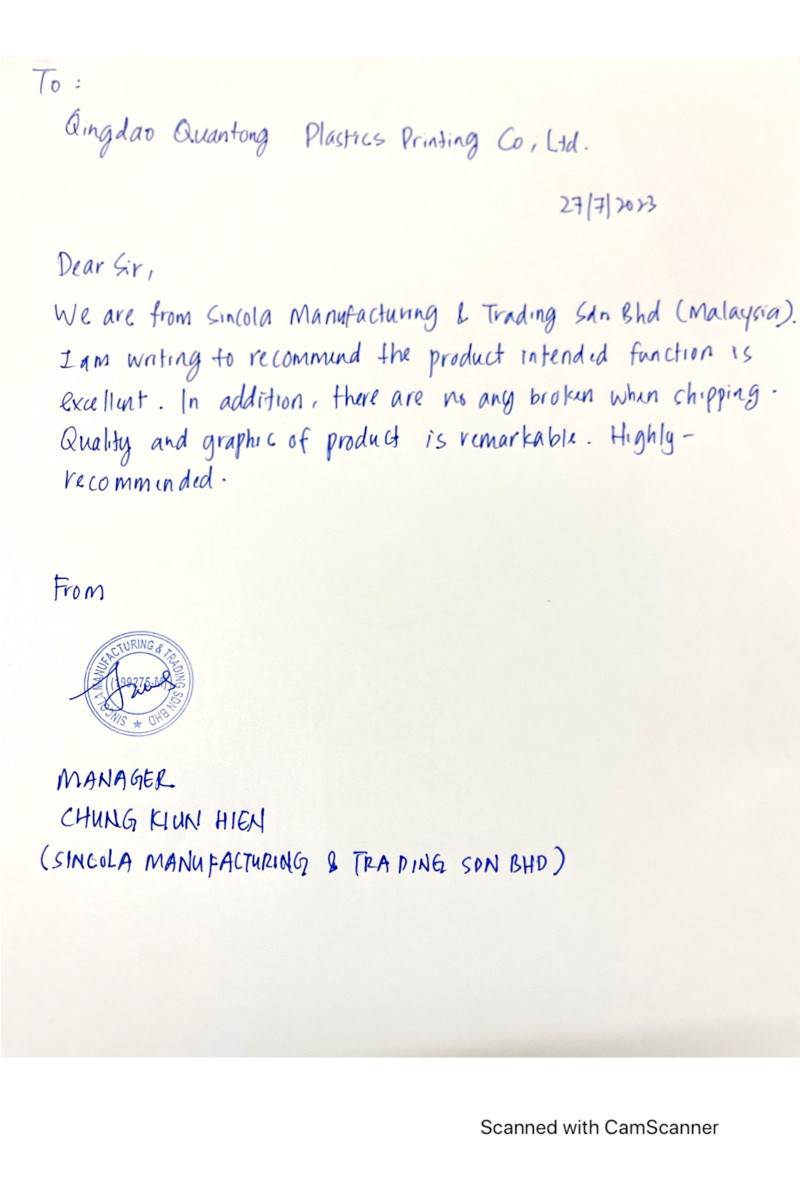 To :
Qingdao Quantong Plastics Printing Co, Ltd.
27/7/2023
Dear Sir,
We are from Sincola Manufacturing & Trading Sdn Bhd (Malaysia).
I am writing to recommend the product intended function is
excellent. In addition, there are no any broken when shipping.
Quality and graphic of product is remarkable. Highly-
recommended.
From
SINCOLA MANUFACTURING & TRADING SDN BHD
MANAGER
CHUNG KIUN HIEN
(SINCOLA MANUFACTURING & TRADING SDN BHD)
Scanned with CamScanner